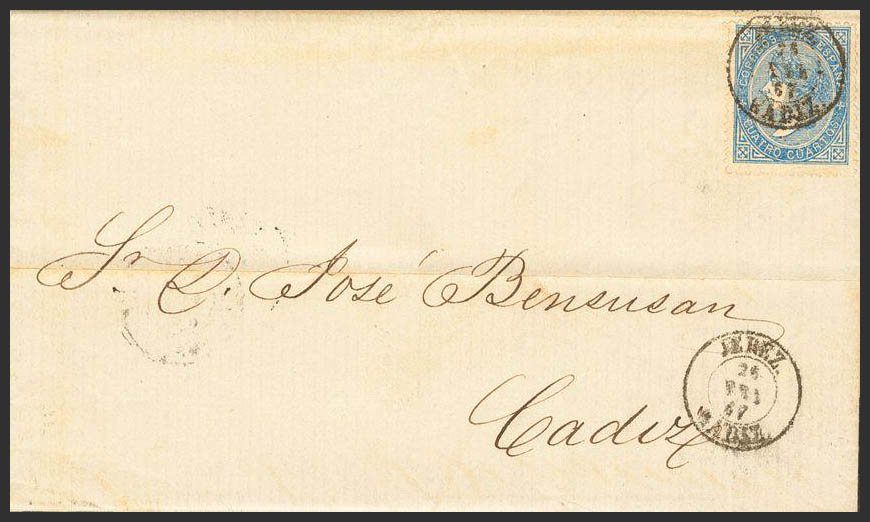 CORREOS DE ESPAÑA
CUATRO CUARTOS
JEREZ.
26
67
CADIZ.
Sr. D. José Bensusan
Cadiz
JEREZ.
26
67
CADIZ.